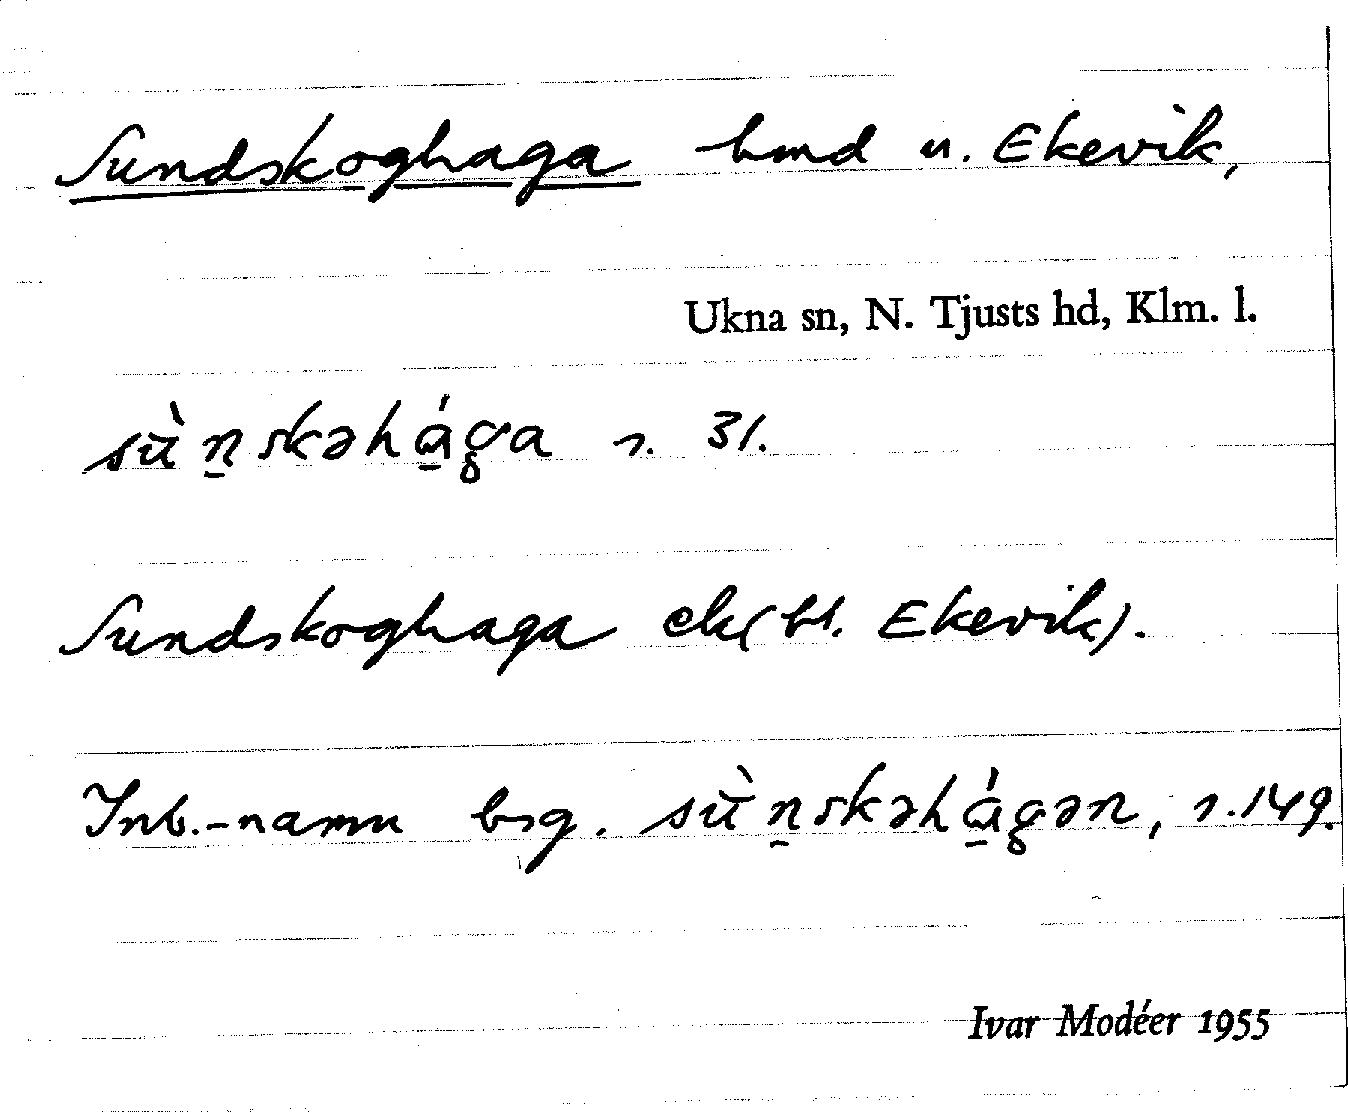 Sundskoghaga hmd u. Ekevik,
Ukna sn, N. Tjusts hd, Klm. l.
sùn̠skəhá̠ga s. 31.
Sundskoghaga ek (bl. Ekevik).
Inb.-namn bsg. sùn̠skəhá̠gən, s. 149.
Ivar Modéer 1955